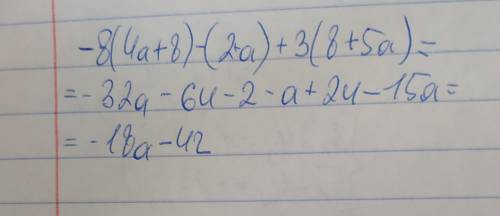 -8(4a+8)-(2-a)+3(8+5a)=
=-32a-64-2-a+24-15a=
=-18a-42